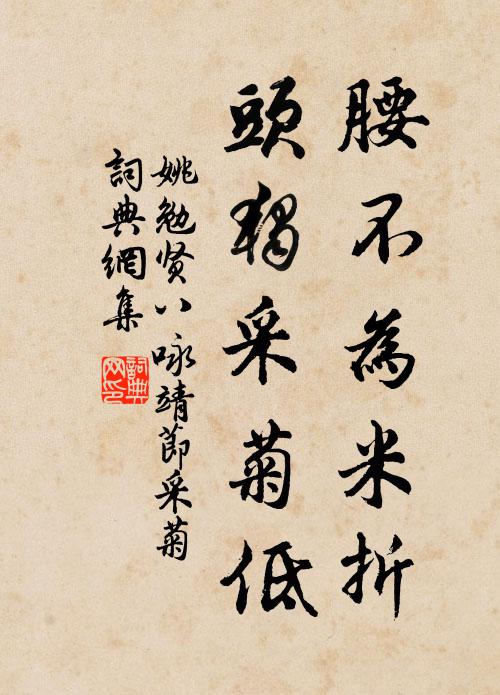 腰不為米折
頭獨采菊低
姚勉賢八咏靖節采菊
詞典網集
詞典
网印